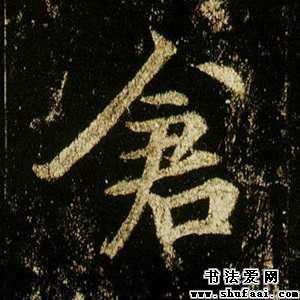 倉
书法爱网
www.shufaai.com